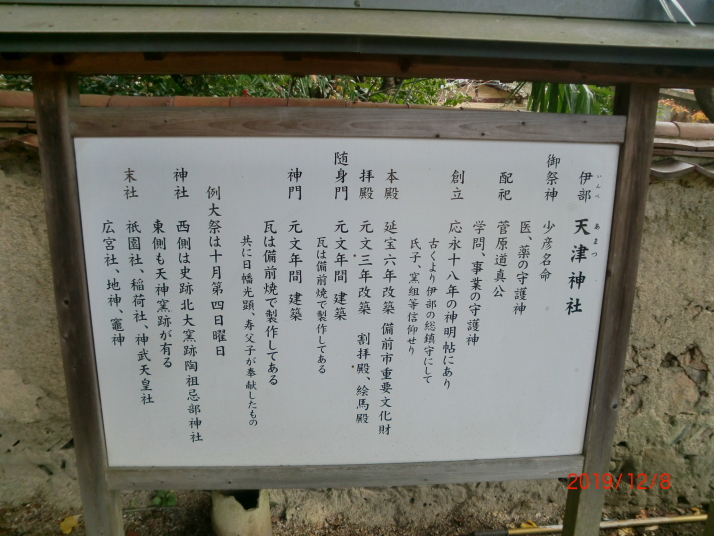 いんべ あまつ
伊部 天津神社
御祭神 少彦名命
医、薬の守護神
配祀 菅原道真公
学問、事業の守護神
創立 応永十八年の神明帖にあり
古くより伊部の総鎮守にして
氏子、窯組等信仰せり
本殿 延宝六年改築 備前市重要文化財
拝殿 元文三年改築 割拝殿、絵馬殿
随身門 元文年間 建築
瓦は備前焼で製作してある
神門 元文年間 建築
瓦は備前焼で製作してある
共に日幡光顕、寿父子が奉献したもの
例大祭は十月第四日曜日
神社 西側は史跡北大窯跡陶祖忌部神社
東側も天神窯跡が有る
末社 祇園社、稲荷社、神武天皇社
広宮社、地神、竈神
2019/12/8